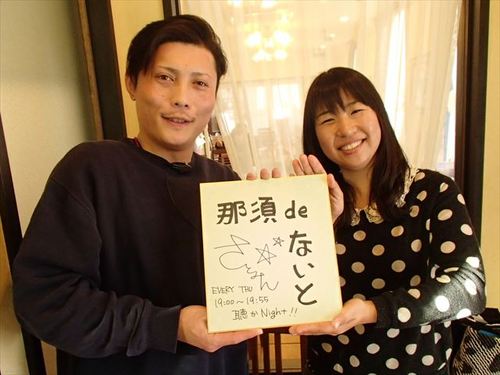 那須 de
ないと
EVERY THU
19:00～19:55
聴かNight!!